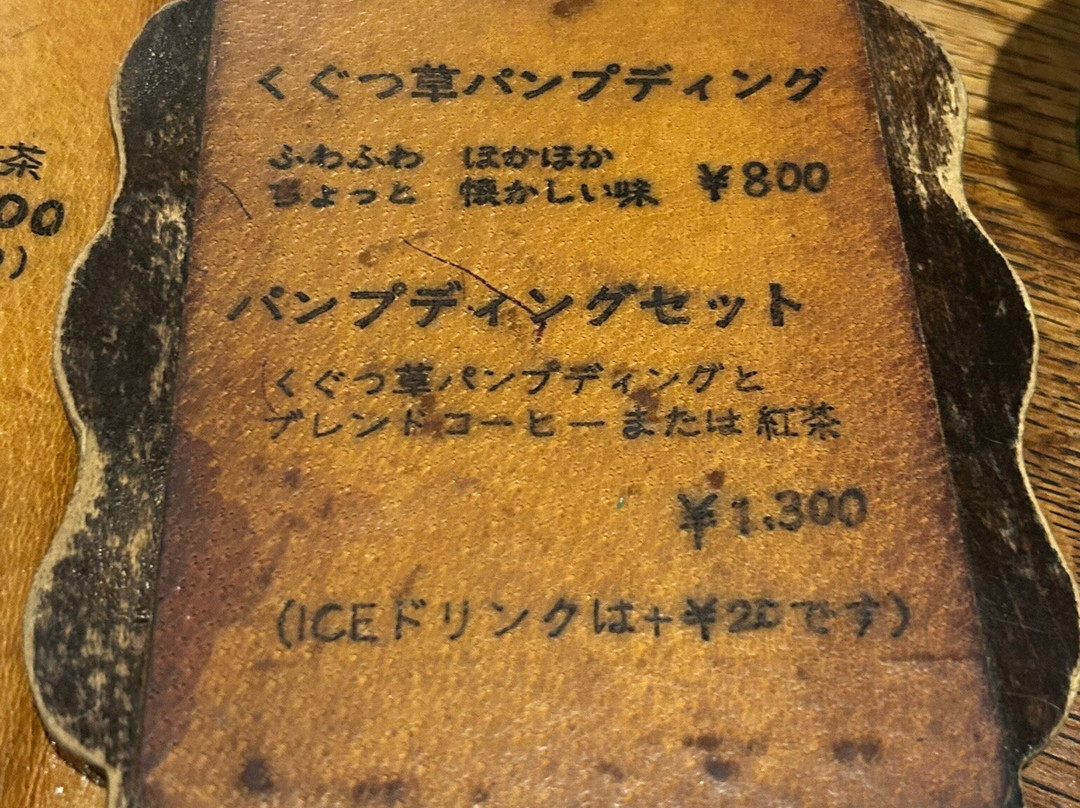 くぐつ草パンプディング
ふわふわ ほかほか
ちょっと 懐かしい味 ¥800
パンプディングセット
くぐつ草パンプディングと
ブレンドコーヒーまたは紅茶
¥1.300
(ICEドリンクは+¥20です)
茶
00
)